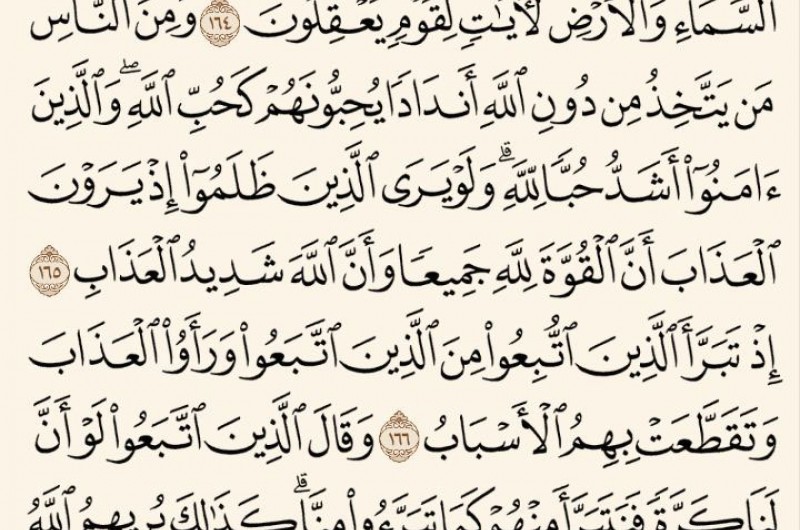 ٱلسَّمَآءِ وَٱلْأَرْضِ لَـَٔايَـٰتٍ لِّقَوْمٍ يَعْقِلُونَ ١٦٤ وَمِنَ ٱلنَّاسِ
مَن يَتَّخِذُ مِن دُونِ ٱللَّهِ أَندَادًا يُحِبُّونَهُمْ كَحُبِّ ٱللَّهِ ۖ وَٱلَّذِينَ
ءَامَنُوٓا۟ أَشَدُّ حُبًّا لِّلَّهِ ۗ وَلَوْ يَرَى ٱلَّذِينَ ظَلَمُوٓا۟ إِذْ يَرَوْنَ
ٱلْعَذَابَ أَنَّ ٱلْقُوَّةَ لِلَّهِ جَمِيعًا وَأَنَّ ٱللَّهَ شَدِيدُ ٱلْعَذَابِ ١٦٥
إِذْ تَبَرَّأَ ٱلَّذِينَ ٱتُّبِعُوا۟ مِنَ ٱلَّذِينَ ٱتَّبَعُوا۟ وَرَأَوُا۟ ٱلْعَذَابَ
وَتَقَطَّعَتْ بِهِمُ ٱلْأَسْبَابُ ١٦٦ وَقَالَ ٱلَّذِينَ ٱتَّبَعُوا۟ لَوْ أَنَّ
لَنَا كَرَّةً فَنَتَبَرَّأَ مِنْهُمْ كَمَا تَبَرَّءُوا۟ مِنَّا ۗ كَذَٰلِكَ يُرِيهِمُ ٱللَّهُ